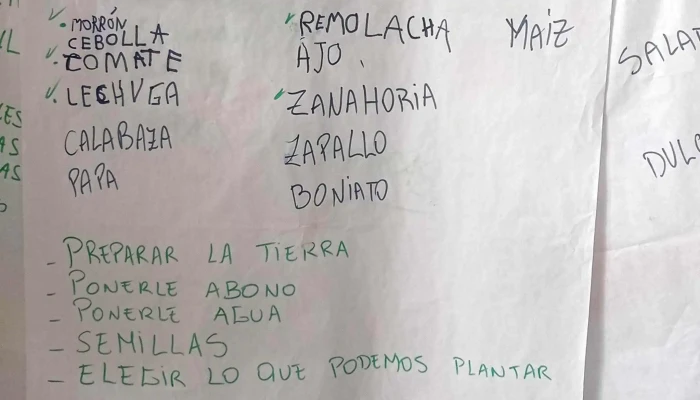 MORRÓN
CEBOLLA
TOMATE
LECHUGA
CALABAZA
PAPA
REMOLACHA
AJO.
ZANAHORIA
ZAPALLO
BONIATO
MAIZ
- PREPARAR LA TIERRA
- PONERLE ABONO
- PONERLE AGUA
- SEMILLAS
- ELEGIR LO QUE PODEMOS PLANTAR